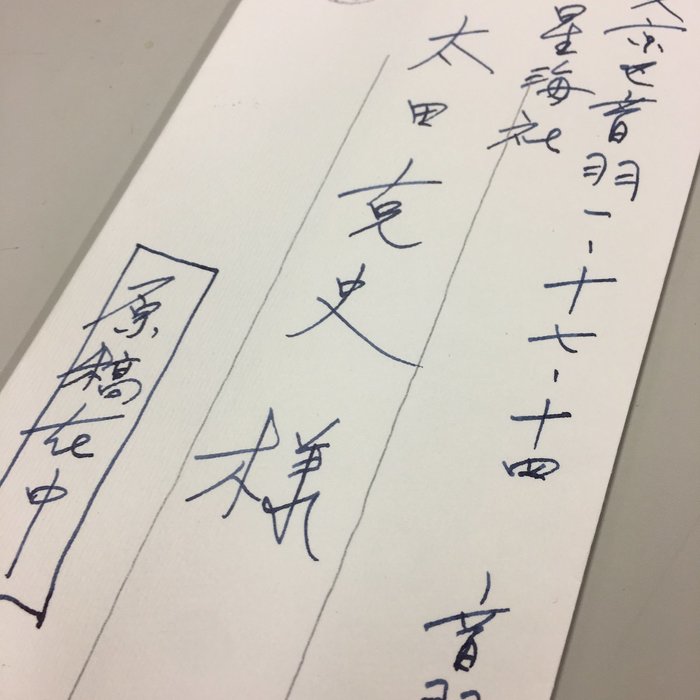 文京区音羽一-十七-十四 音羽
星海社
太田克史 様
原稿在中